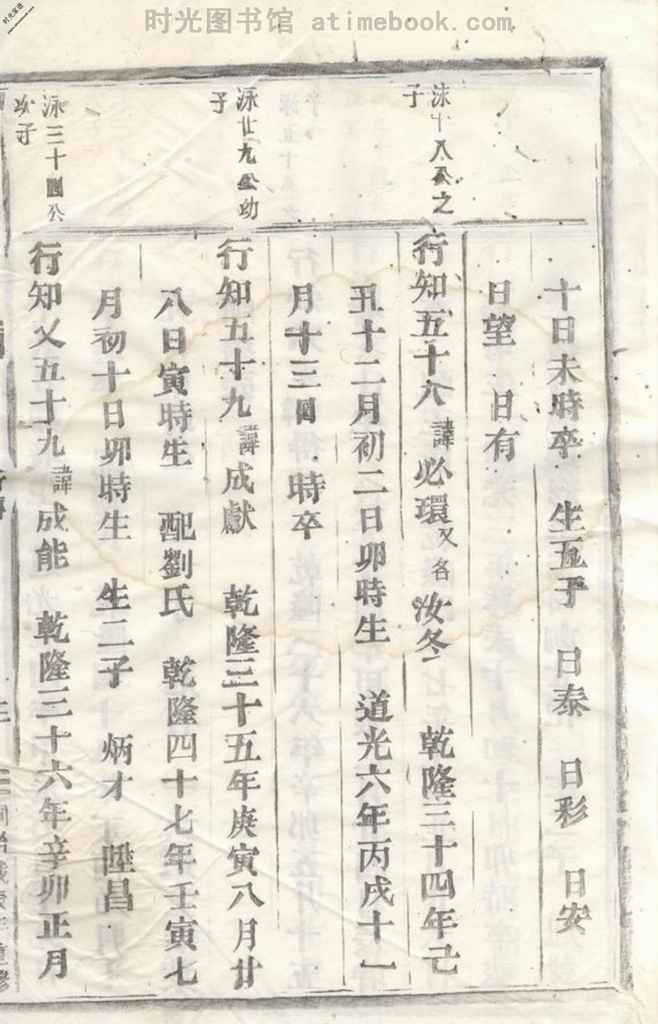 时光图书馆 atimebook.com
时光家谱
十日未時卒 生五子 日泰 日彩 日安
日望 日有
泳十八公之
子
行知五十八諱必環又名汝冬 乾隆三十四年己
丑十二月初二日卯時生 道光六年丙戌十一
月十三日 時卒
泳廿九公幼
子
行知五十九諱成獻 乾隆三十五年庚寅八月廿
八日寅時生 配劉氏 乾隆四十七年壬寅七
月初十日卯時生 生二子 炳才 陞昌
泳三十四公
次子
行知又五十九諱成能 乾隆三十六年辛卯正月